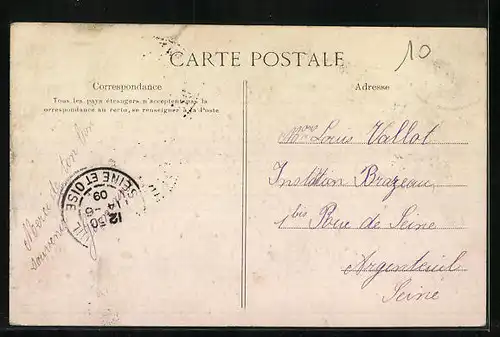 10
CARTE POSTALE
Correspondance
Tous les pays étrangers n'acceptent pas la
correspondance au recto, se renseigner à la Poste
Adresse
Louis Vallot
Institution Brazeau
bis Rue de Seine
Argenteuil
Seine
Merci de ton bon
souvenir
SEINE ET OISE
12 30
14-6
09